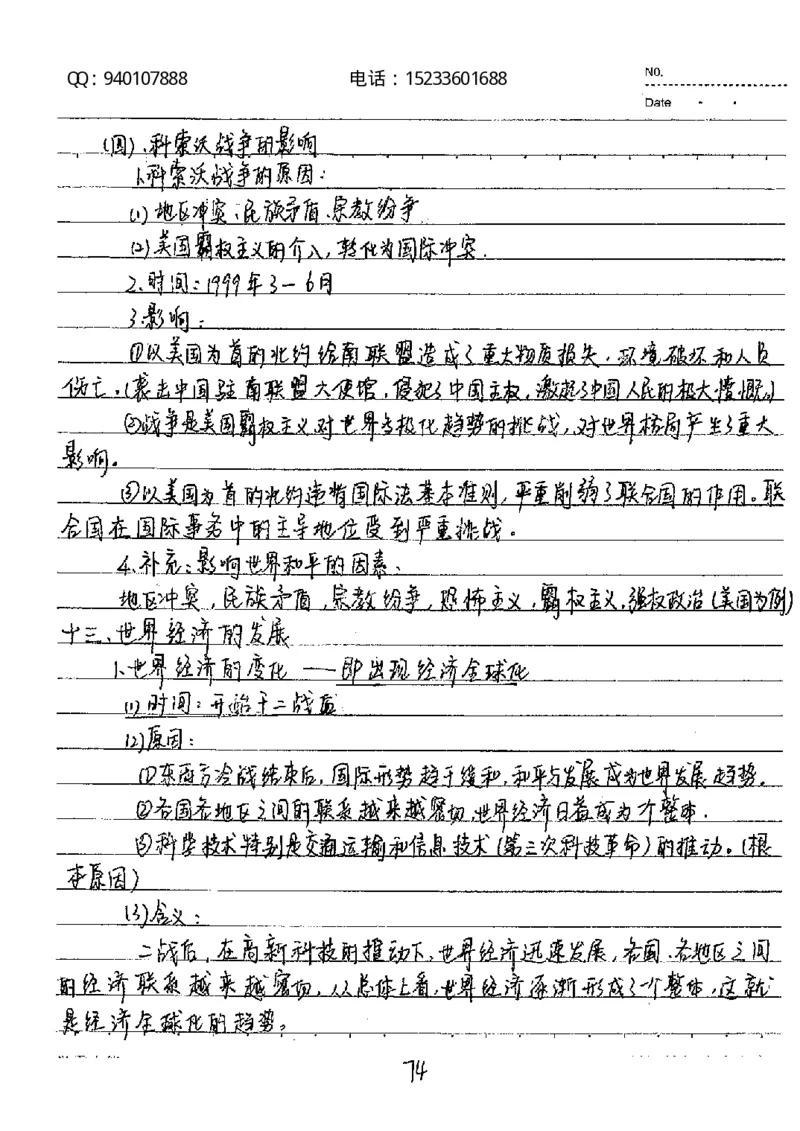 QQ：940107888 电话：15233601688 NO.
Date
(四)、科索沃战争的影响
1.科索沃战争的原因：
(1)地区冲突、民族矛盾、宗教纷争
(2)美国霸权主义的介入，转化为国际冲突.
2.时间：1999年3－6月
3.影响：
①以美国为首的北约给南联盟造成了重大物质损失，环境破坏和人员
伤亡。(袭击中国驻南联盟大使馆，侵犯了中国主权，激起了中国人民的极大愤慨。)
②战争是美国霸权主义对世界多极化趋势的挑战，对世界格局产生了重大
影响。
③以美国为首的北约违背国际法基本准则，严重削弱了联合国的作用。联
合国在国际事务中的主导地位受到严重挑战。
4.补充：影响世界和平的因素、
地区冲突，民族矛盾，宗教纷争，恐怖主义，霸权主义，强权政治(美国为例)
十三、世界经济的发展
1.世界经济的变化——即出现经济全球化
(1)时间：开始于二战后
(2)原因：
①东西方冷战结束后，国际形势趋于缓和，和平与发展成为世界发展趋势。
②各国各地区之间的联系越来越密切，世界经济日益成为个整体.
③科学技术特别是交通运输和信息技术(第三次科技革命)的推动。(根
本原因)
(3)含义：
二战后，在高新科技的推动下，世界经济迅速发展，各国、各地区之间
的经济联系越来越密切，从总体上看，世界经济逐渐形成了一个整体，这就
是经济全球化的趋势。
74